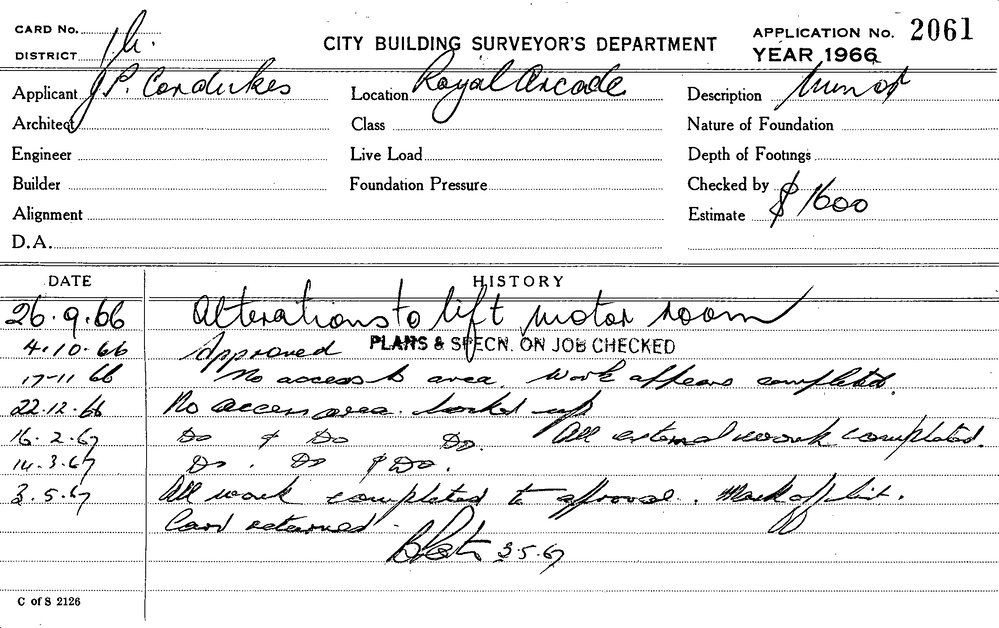 CARD No.
DISTRICT
CITY BUILDING SURVEYOR'S DEPARTMENT
APPLICATION No. 2061
YEAR 1966
Applicant J.P. Cordukes
Location Royal Arcade
Description Minor
Architect
Class
Nature of Foundation
Engineer
Live Load
Depth of Footings
Builder
Foundation Pressure
Checked by
Alignment
Estimate $1600
D.A.
DATE HISTORY
26.9.66 Alterations to lift motor room
4.10.66 Approved PLANS & SPECN. ON JOB CHECKED
17-11 66 No access to area. Work appears completed.
22.12.66 No access area. Locked up
16.2.67 Do & Do Do. All external work completed.
14.3.67 Do. Do & Do.
3.5.67 All work completed to approval. Mark off list.
Card returned.
3.5.67
C of S 2126